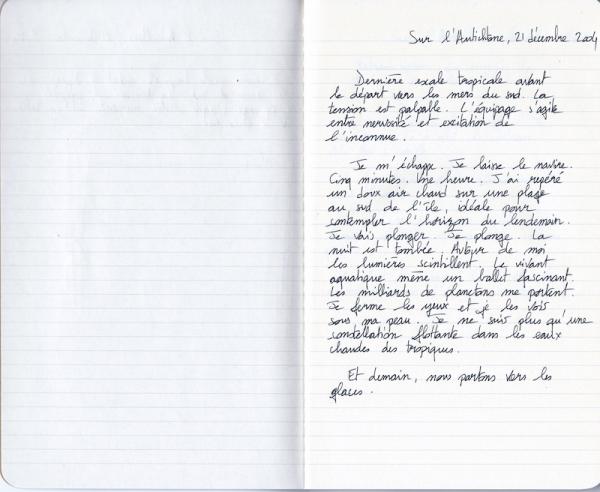 Sur l'Antichtone, 21 décembre 2004
Dernière escale tropicale avant
le départ vers les mers du sud. La
tension est palpable. L'équipage s'agite
entre nervosité et excitation de
l'inconnue.
Je m'échappe. Je laisse le navire.
Cinq minutes. Une heure. J'ai repéré
un doux air chaud sur une plage
au sud de l'île idéale pour
contempler l'horizon du lendemain.
Je vais plonger. Je plonge. La
nuit est tombée. Autour de moi
les lumières scintillent. Le vivant
aquatique mène un ballet fascinant.
Les milliards de planctons me portent.
Je ferme les yeux et je les vois
sous ma peau. Je ne suis plus qu'une
constellation flottante dans les eaux
chaudes des tropiques.
Et demain, nous partons vers les
glaces.